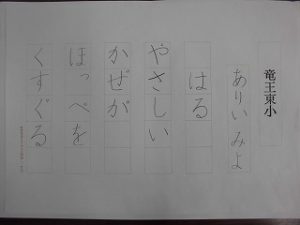 竜王東小
ありい みよ
はる
やさしい
かぜが
ほっぺを
くすぐる